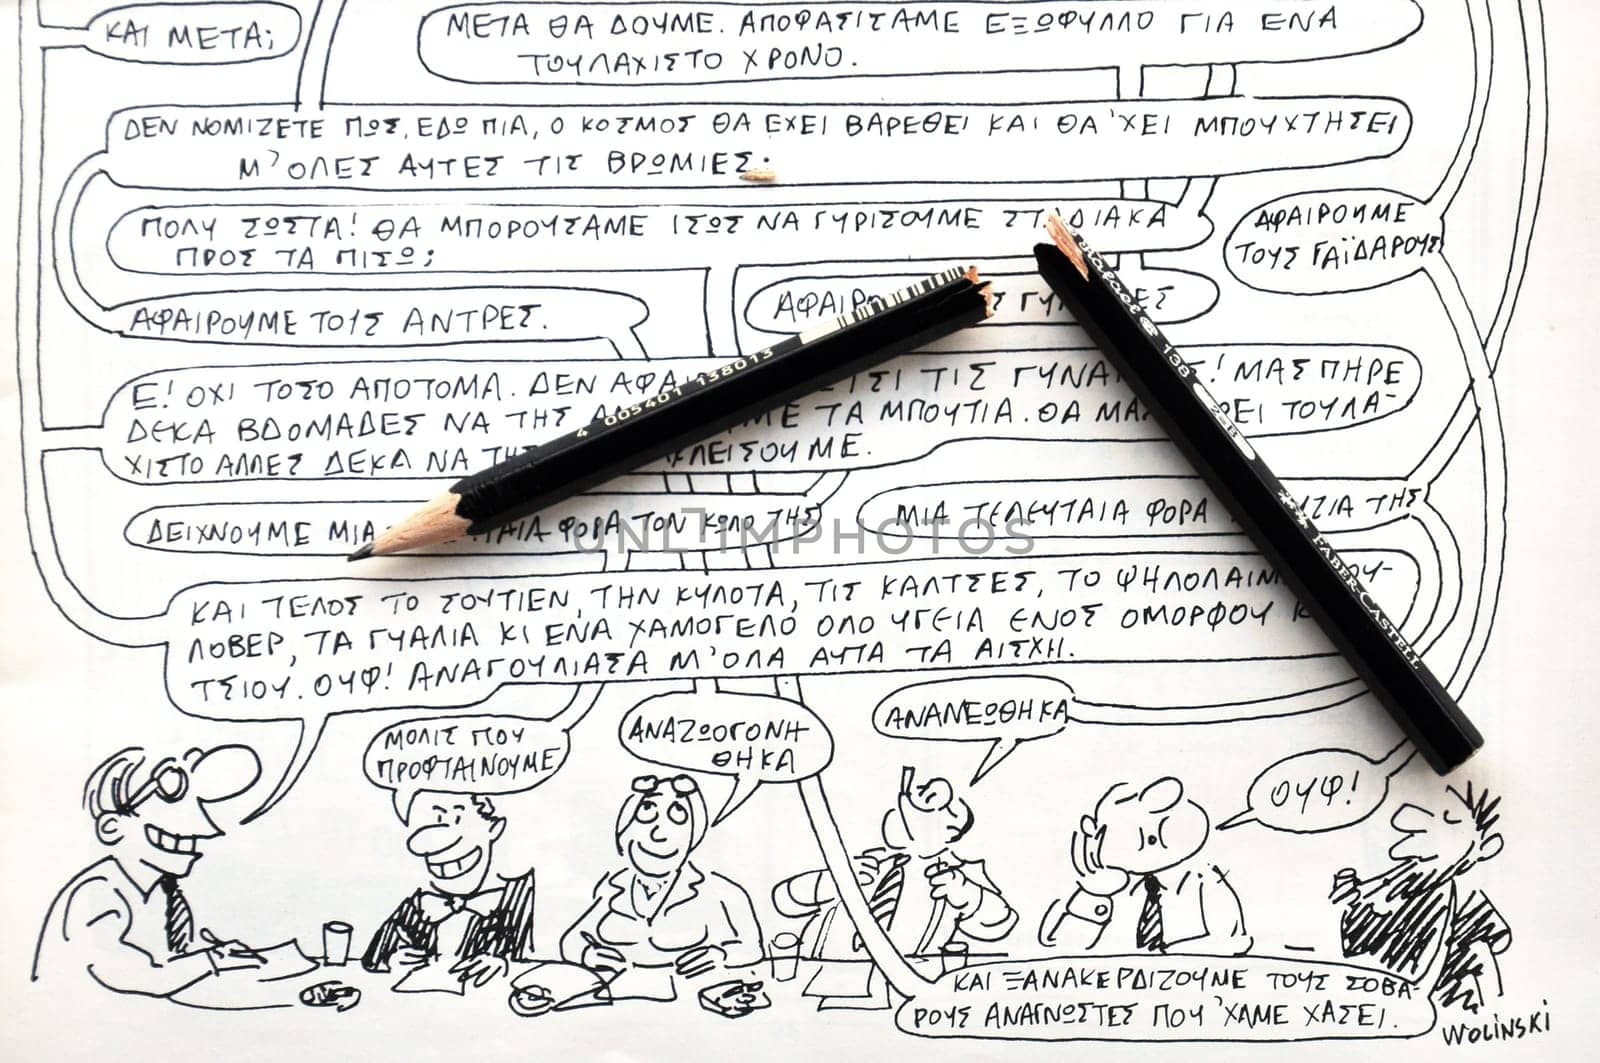 ΚΑΙ ΜΕΤΑ;
ΜΕΤΑ ΘΑ ΔΟΥΜΕ. ΑΠΟΦΑΣΙΣΑΜΕ ΕΞΩΦΥΛΛΟ ΓΙΑ ΕΝΑ
ΤΟΥΛΑΧΙΣΤΟ ΧΡΟΝΟ.
ΔΕΝ ΝΟΜΙΖΕΤΕ ΠΩΣ, ΕΔΩ ΠΙΑ, Ο ΚΟΣΜΟΣ ΘΑ ΕΧΕΙ ΒΑΡΕΘΕΙ ΚΑΙ ΘΑ 'ΧΕΙ ΜΠΟΥΧΤΗΣΕΙ
Μ' ΟΛΕΣ ΑΥΤΕΣ ΤΙΣ ΒΡΩΜΙΕΣ;
ΠΟΛΥ ΣΩΣΤΑ! ΘΑ ΜΠΟΡΟΥΣΑΜΕ ΙΣΩΣ ΝΑ ΓΥΡΙΣΟΥΜΕ ΣΤΑΔΙΑΚΑ
ΠΡΟΣ ΤΑ ΠΙΣΩ;
ΑΦΑΙΡΟΥΜΕ
ΤΟΥΣ ΓΑΪΔΑΡΟΥΣ
ΑΦΑΙΡΟΥΜΕ ΤΟΥΣ ΑΝΤΡΕΣ.
Ε! ΟΧΙ ΤΟΣΟ ΑΠΟΤΟΜΑ. ΔΕΝ ΕΤΣΙ ΤΙΣ ΜΑΣ ΠΗΡΕ
ΔΕΚΑ ΒΔΟΜΑΔΕΣ ΝΑ ΤΗΣ ΤΑ ΜΠΟΥΤΙΑ. ΘΑ ΤΟΥΛΑ-
ΧΙΣΤΟ ΑΛΛΕΣ ΔΕΚΑ ΝΑ ΚΛΕΙΣΟΥΜΕ.
ΔΕΙΧΝΟΥΜΕ ΜΙΑ ΦΟΡΑ ΤΟΝ ΚΩΛΟ ΤΗΣ
ΜΙΑ ΤΕΛΕΥΤΑΙΑ ΦΟΡΑ ΤΗΣ
ΚΑΙ ΤΕΛΟΣ ΤΟ ΣΟΥΤΙΕΝ, ΤΗΝ ΚΥΛΟΤΑ, ΤΙΣ ΚΑΛΤΣΕΣ, ΤΟ
ΛΟΒΕΡ, ΤΑ ΓΥΑΛΙΑ ΚΙ ΕΝΑ ΧΑΜΟΓΕΛΟ ΟΛΟ ΥΓΕΙΑ ΕΝΟΣ ΟΜΟΡΦΟΥ
ΤΣΙΟΥ. ΟΥΦ! ΑΝΑΓΟΥΛΙΑΣΑ Μ' ΟΛΑ ΑΥΤΑ ΤΑ ΑΙΣΧΗ.
ΜΟΛΙΣ ΠΟΥ
ΠΡΟΦΤΑΙΝΟΥΜΕ
ΑΝΑΖΩΟΓΟΝΗ-
ΘΗΚΑ
ΑΝΑΝΕΩΘΗΚΑ
ΟΥΦ!
ΚΑΙ ΞΑΝΑΚΕΡΔΙΖΟΥΜΕ ΤΟΥΣ ΣΟΒΑ-
ΡΟΥΣ ΑΝΑΓΝΩΣΤΕΣ ΠΟΥ 'ΧΑΜΕ ΧΑΣΕΙ.
WOLINSKI
4 005401 138013
138
FABER-CASTELL
UNLIMPHOTOS